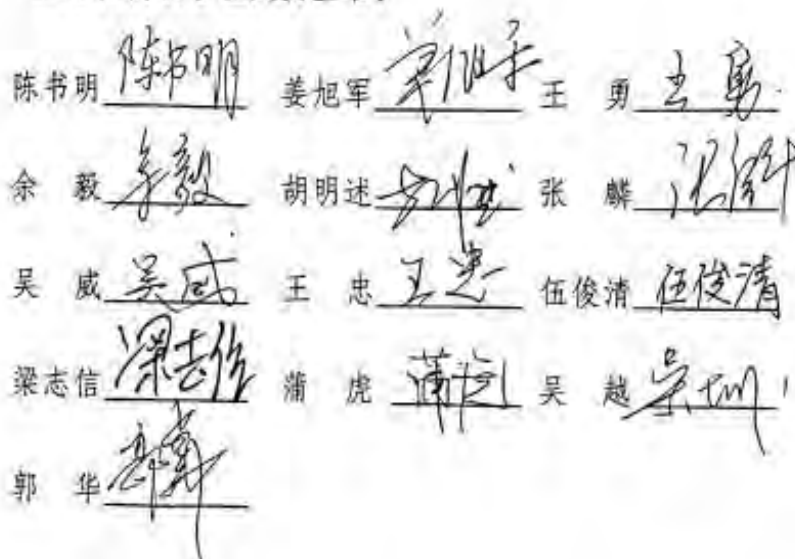 陈书明 陈书明 姜旭军 王 勇 王勇
余 毅 余毅 胡明述 张 麟
吴 威 吴威 王 忠 王忠 伍俊清 伍俊清
梁志信 梁志信 蒲 虎 吴 越
郭 华